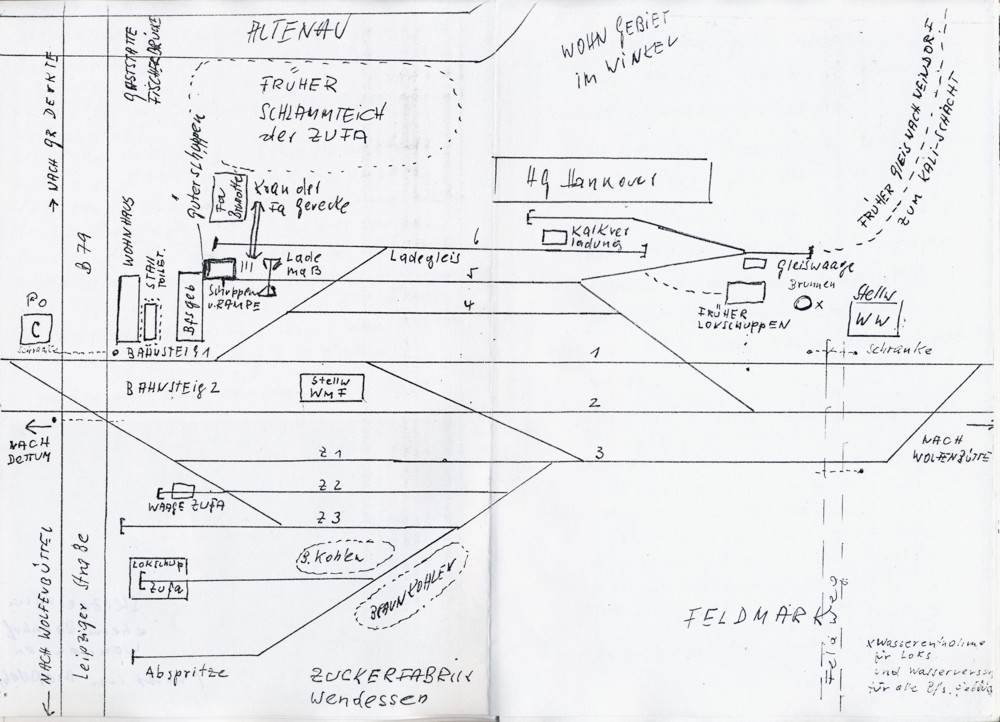 ALTENAU
WOHNGEBIET
IM WINKEL
GASTSTÄTTE
FISCHERBRÜCKE
→ NACH GR DENKTE
B 79
FRÜHER
SCHLAMMTEICH
der ZUFA
FRÜHER GLEIS NACH NEINDORF
ZUM KALI-SCHACHT
Güterschuppen
Fa
Kran der
Fa Gerecke
HG Hannover
WOHNHAUS
STALL
TOILET.
Bfsgeb
Schuppen
u. RAMPE
Lade
maß
6
Ladegleis
5
4
Kalkver
ladung
Gleiswaage
Brunnen
x
FRÜHER
LOKSCHUPPEN
Stellw
WW
Schranke
Po
C
Schranke
BAHNSTEIG 1
1
BAHNSTEIG 2
Stellw
WMF
2
NACH
DETTUM
NACH
WOLFENBÜTTE
3
Z 1
Z 2
WAAGE ZUFA
Z 3
B. Kohlen
BRAUNKOHLEN
LOKSCHUP
Zufa
Abspritze
ZUCKERFABRIK
Wendessen
← NACH WOLFENBÜTTEL
Leipziger Straße
FELDMARK
Feldweg
x Wasserentnahme
für Loks
und Wasserversor
für alle Bfs.